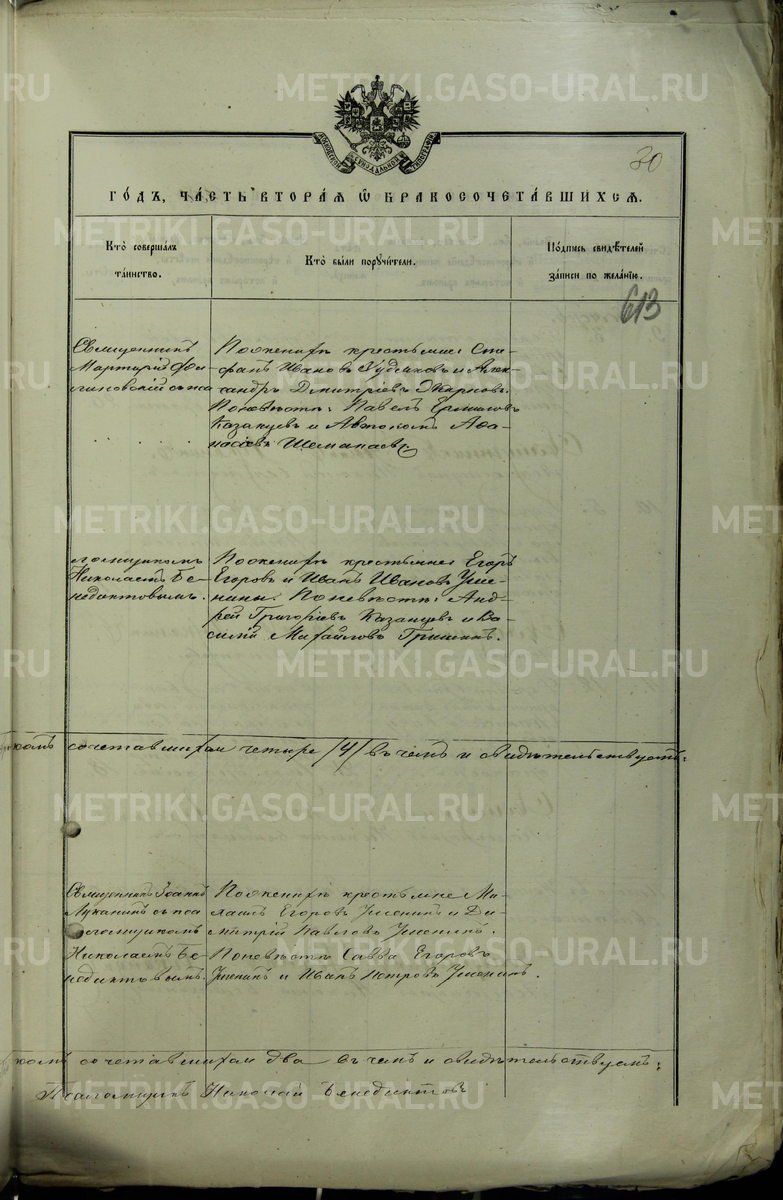 METRIKI.GASO-URAL.RU
30
ГОДЪ, ЧАСТЬ ВТОРАЯ Ѡ БРАКОСОЧЕТАВШИХСЯ.
Кто совершалъ таинство.
Кто были поручители.
Подпись свидѣтелей записи по желанію.
613
Священникъ
Мартирій
Поженихѣ крестьяне: Сте-
фанъ Ивановъ и Алек-
сандръ Дмитріевъ
Поневѣстѣ: Павелъ
Казанцевъ и Автономъ Афа-
насіевъ Шеманаевъ.
псаломщикомъ
Николаемъ Бе-
недиктовымъ.
Поженихѣ крестьяне Егоръ
Егоровъ и Иванъ Ивановъ Уше-
нины. Поневѣстѣ: Анд-
рей Григоріевъ Казанцевъ и Ва-
силій Михайловъ Гришинъ.
сочетавшихся четыре /4/ въ чемъ и свидѣтельствуютъ:
Священникъ Іоаннъ
Луканинъ съ пса
ломщикомъ
Николаемъ Бе-
недиктовымъ.
Поженихѣ крестьяне Ми-
хаилъ Егоровъ Ушенинъ и Ди-
митрій Павловъ Ушенинъ.
Поневѣстѣ Савва Егоровъ
Ушенинъ и Иванъ Петровъ Ушенинъ.
сочетавшихся два въ чемъ и свидѣтельствуемъ:
Псаломщикъ Николай Бенедиктовъ